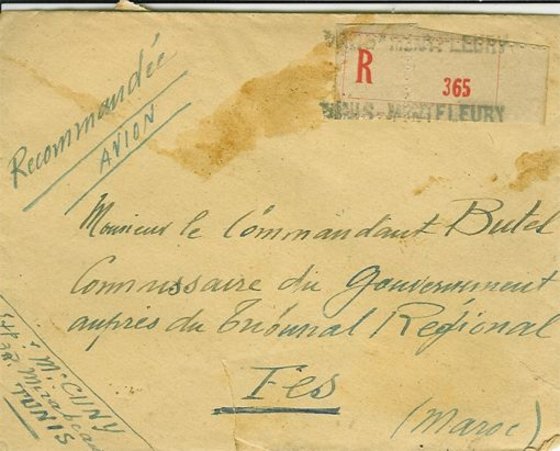 Recommandée
AVION
TUNIS-MONTFLEURY
R
365
TUNIS-MONTFLEURY
Monsieur le Commandant Butet
Commissaire du Gouvernement
auprès du Tribunal Régional
Fes
(Maroc)
Mc CUNY
Mirabeau
TUNIS